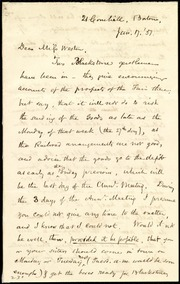 21 Cornhill, Boston,
Jan. 17. '57
Dear Miss Weston,
Two Blackstone gentlemen
have been in — they give encouraging
account of the prospect of the Fair there;
but say, that it will not do to risk
the sending of the Goods as late as the
Monday of that week (the 27th day), as
the Railroad arrangements are not good,
and advise that the goods go to the depôt
as early as Friday previous, which will be
the last day of the Annl. Meeting. During
the 3 days of the Annl. Meeting I presume
you could not give any time to the matter,
and I know that I could not. Would it not
be well, then, provided it be possible, that you
or your sisters should come in town on
Monday or Tuesday (that is, it would be
enough) & get the boxes ready for Blackstone,